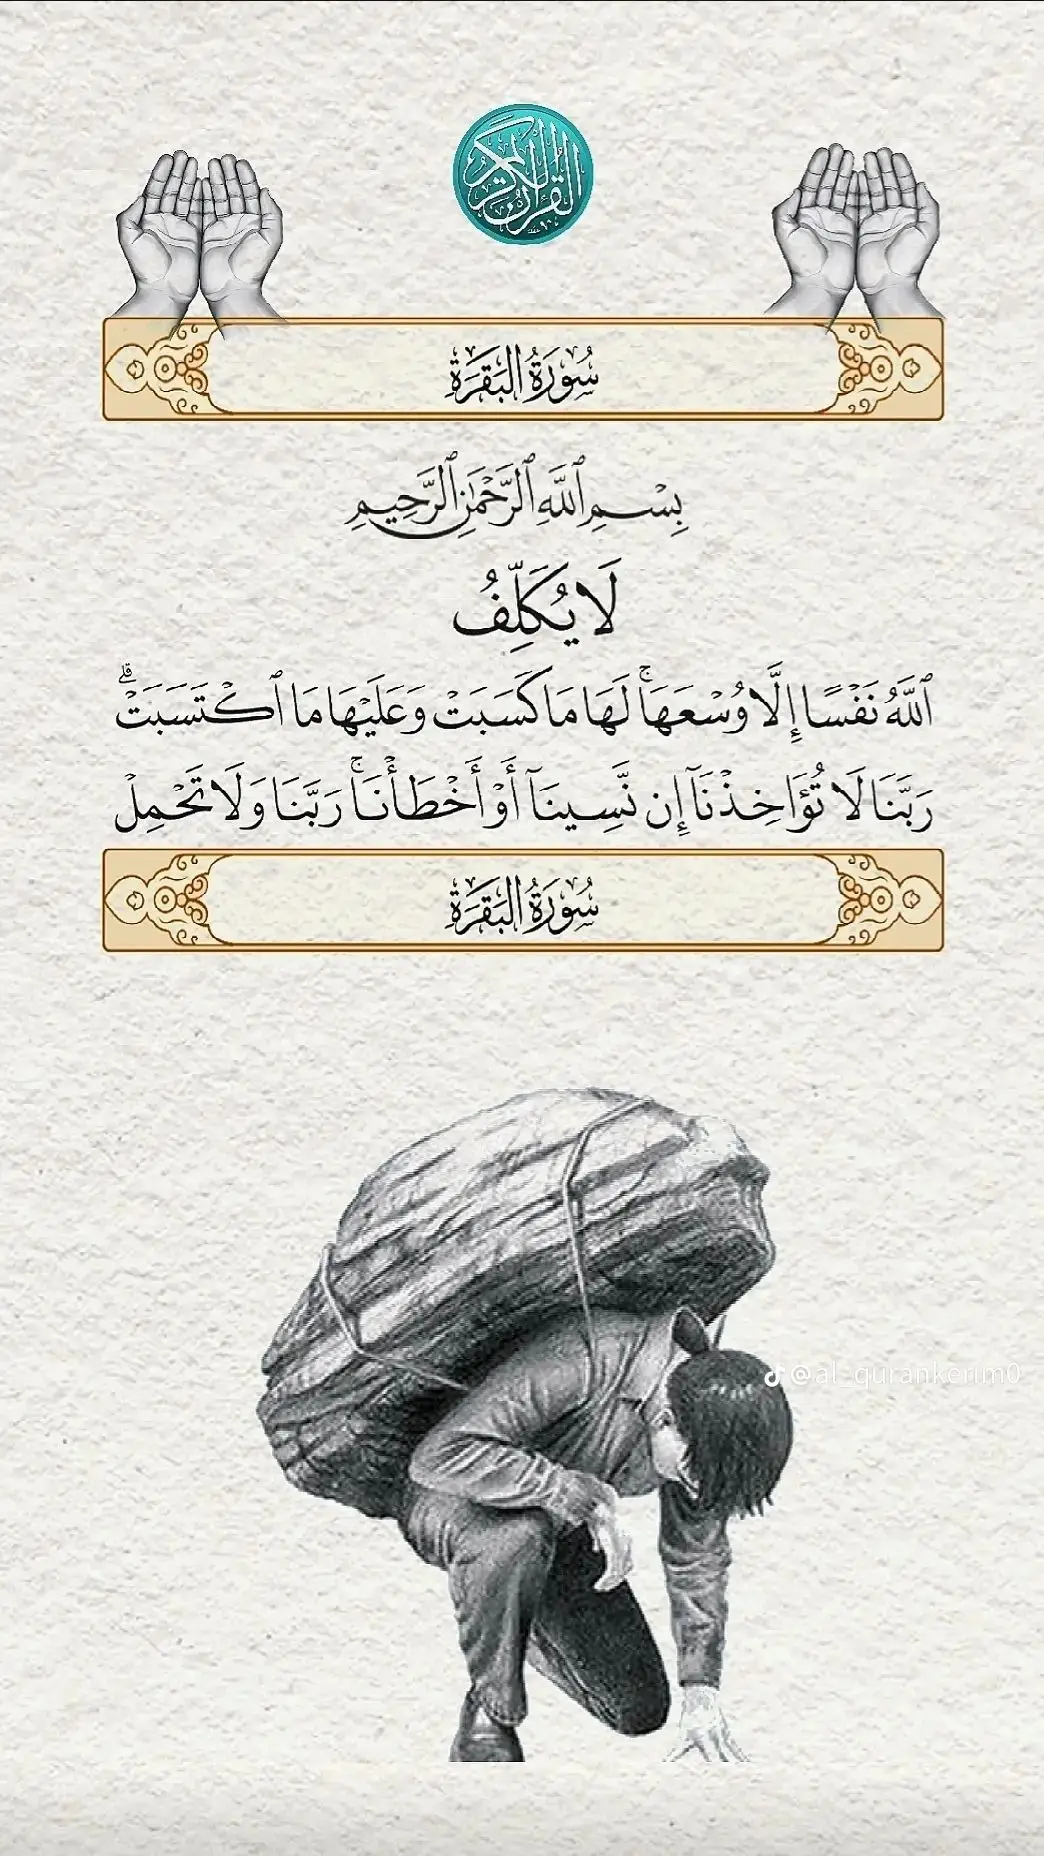 القرآن الكريم
سُورَةُ البَقَرَةِ
بِسْمِ ٱللَّهِ ٱلرَّحْمَٰنِ ٱلرَّحِيمِ
لَا يُكَلِّفُ
ٱللَّهُ نَفْسًا إِلَّا وُسْعَهَاۚ لَهَا مَا كَسَبَتْ وَعَلَيْهَا مَا ٱكْتَسَبَتْۗ
رَبَّنَا لَا تُؤَاخِذْنَآ إِن نَّسِينَآ أَوْ أَخْطَأْنَاۚ رَبَّنَا وَلَا تَحْمِلْ
سُورَةُ البَقَرَةِ
@al_qurankerim0